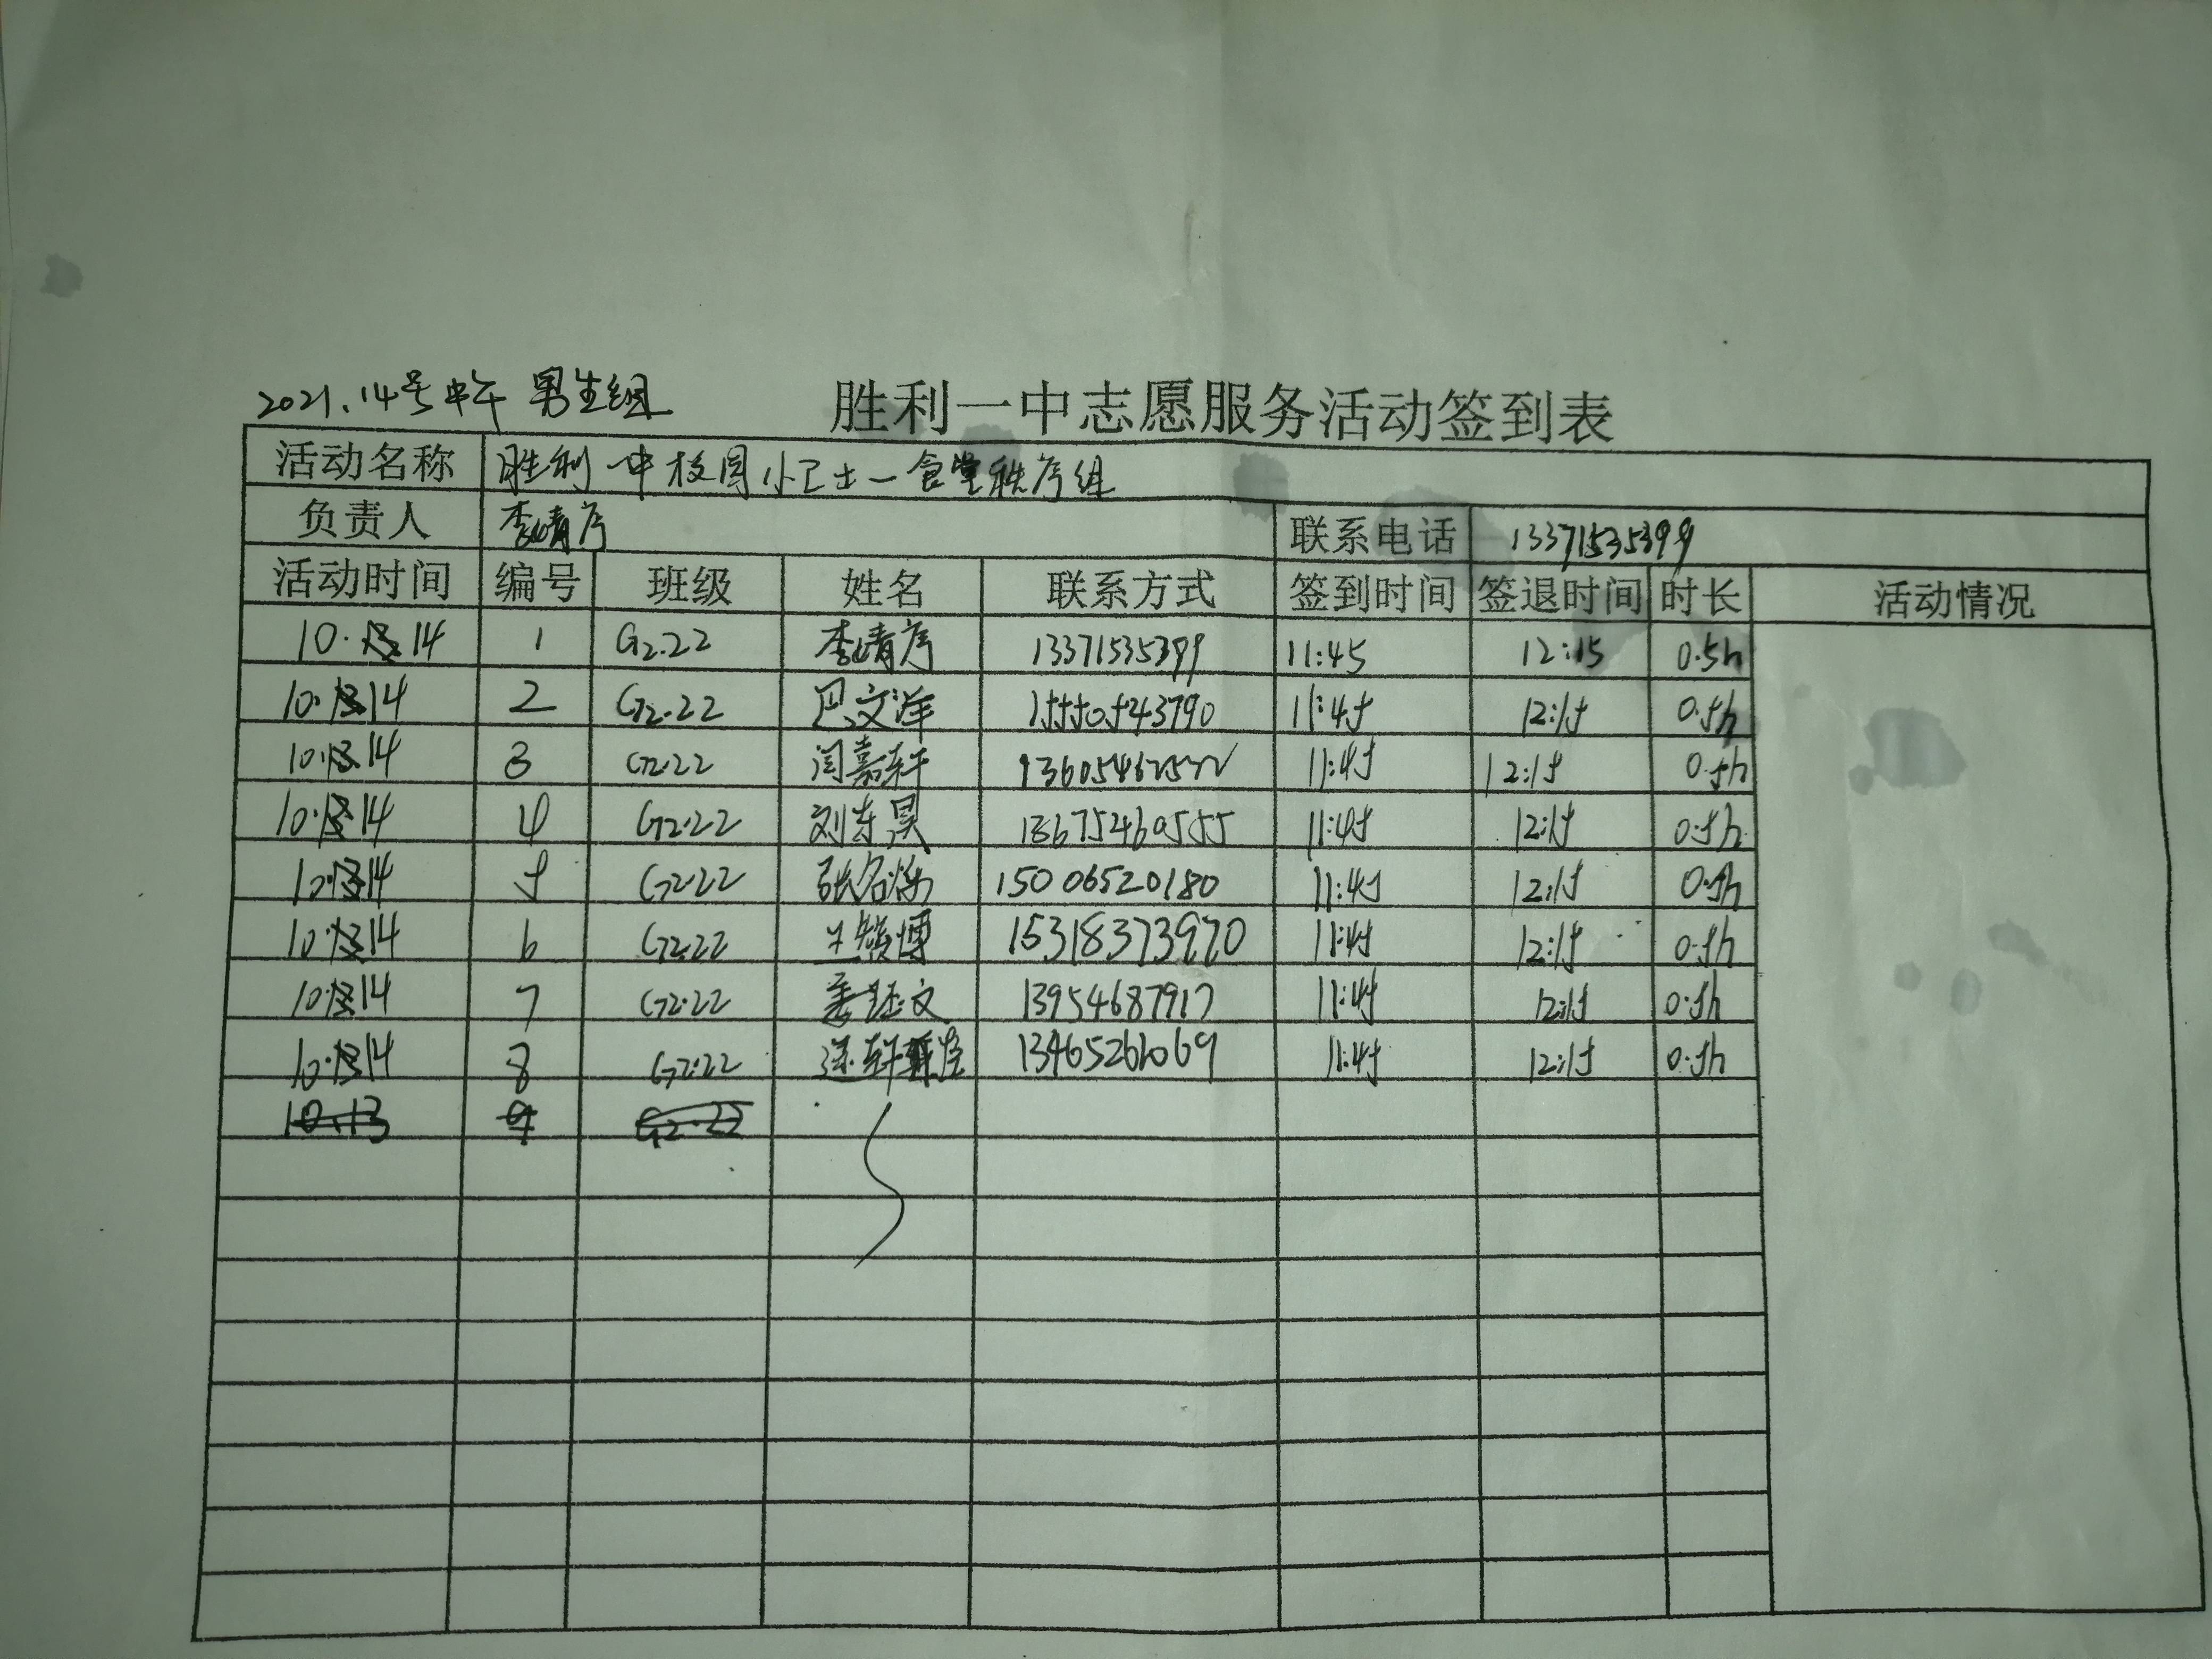 2021.14号中午 男生组
胜利一中志愿服务活动签到表
活动名称 胜利一中校园小卫士—食堂秩序组
负责人 李婧序 联系电话 13371535399
活动时间 编号 班级 姓名 联系方式 签到时间 签退时间 时长 活动情况
10.14 1 G2.22 李婧序 13371535399 11:45 12:15 0.5h
10.14 2 G2.22 巴文洋 15550543790 11:45 12:15 0.5h
10.14 3 G2.22 闫嘉轩 11:45 12:15 0.5h
10.14 4 G2.22 刘东昊 13675460555 11:45 12:15 0.5h
10.14 5 G2.22 15006520180 11:45 12:15 0.5h
10.14 6 G2.22 15318373970 11:45 12:15 0.5h
10.14 7 G2.22 13954687917 11:45 12:15 0.5h
10.14 8 G2.22 11:45 12:15 0.5h
10.13 9 G2.22